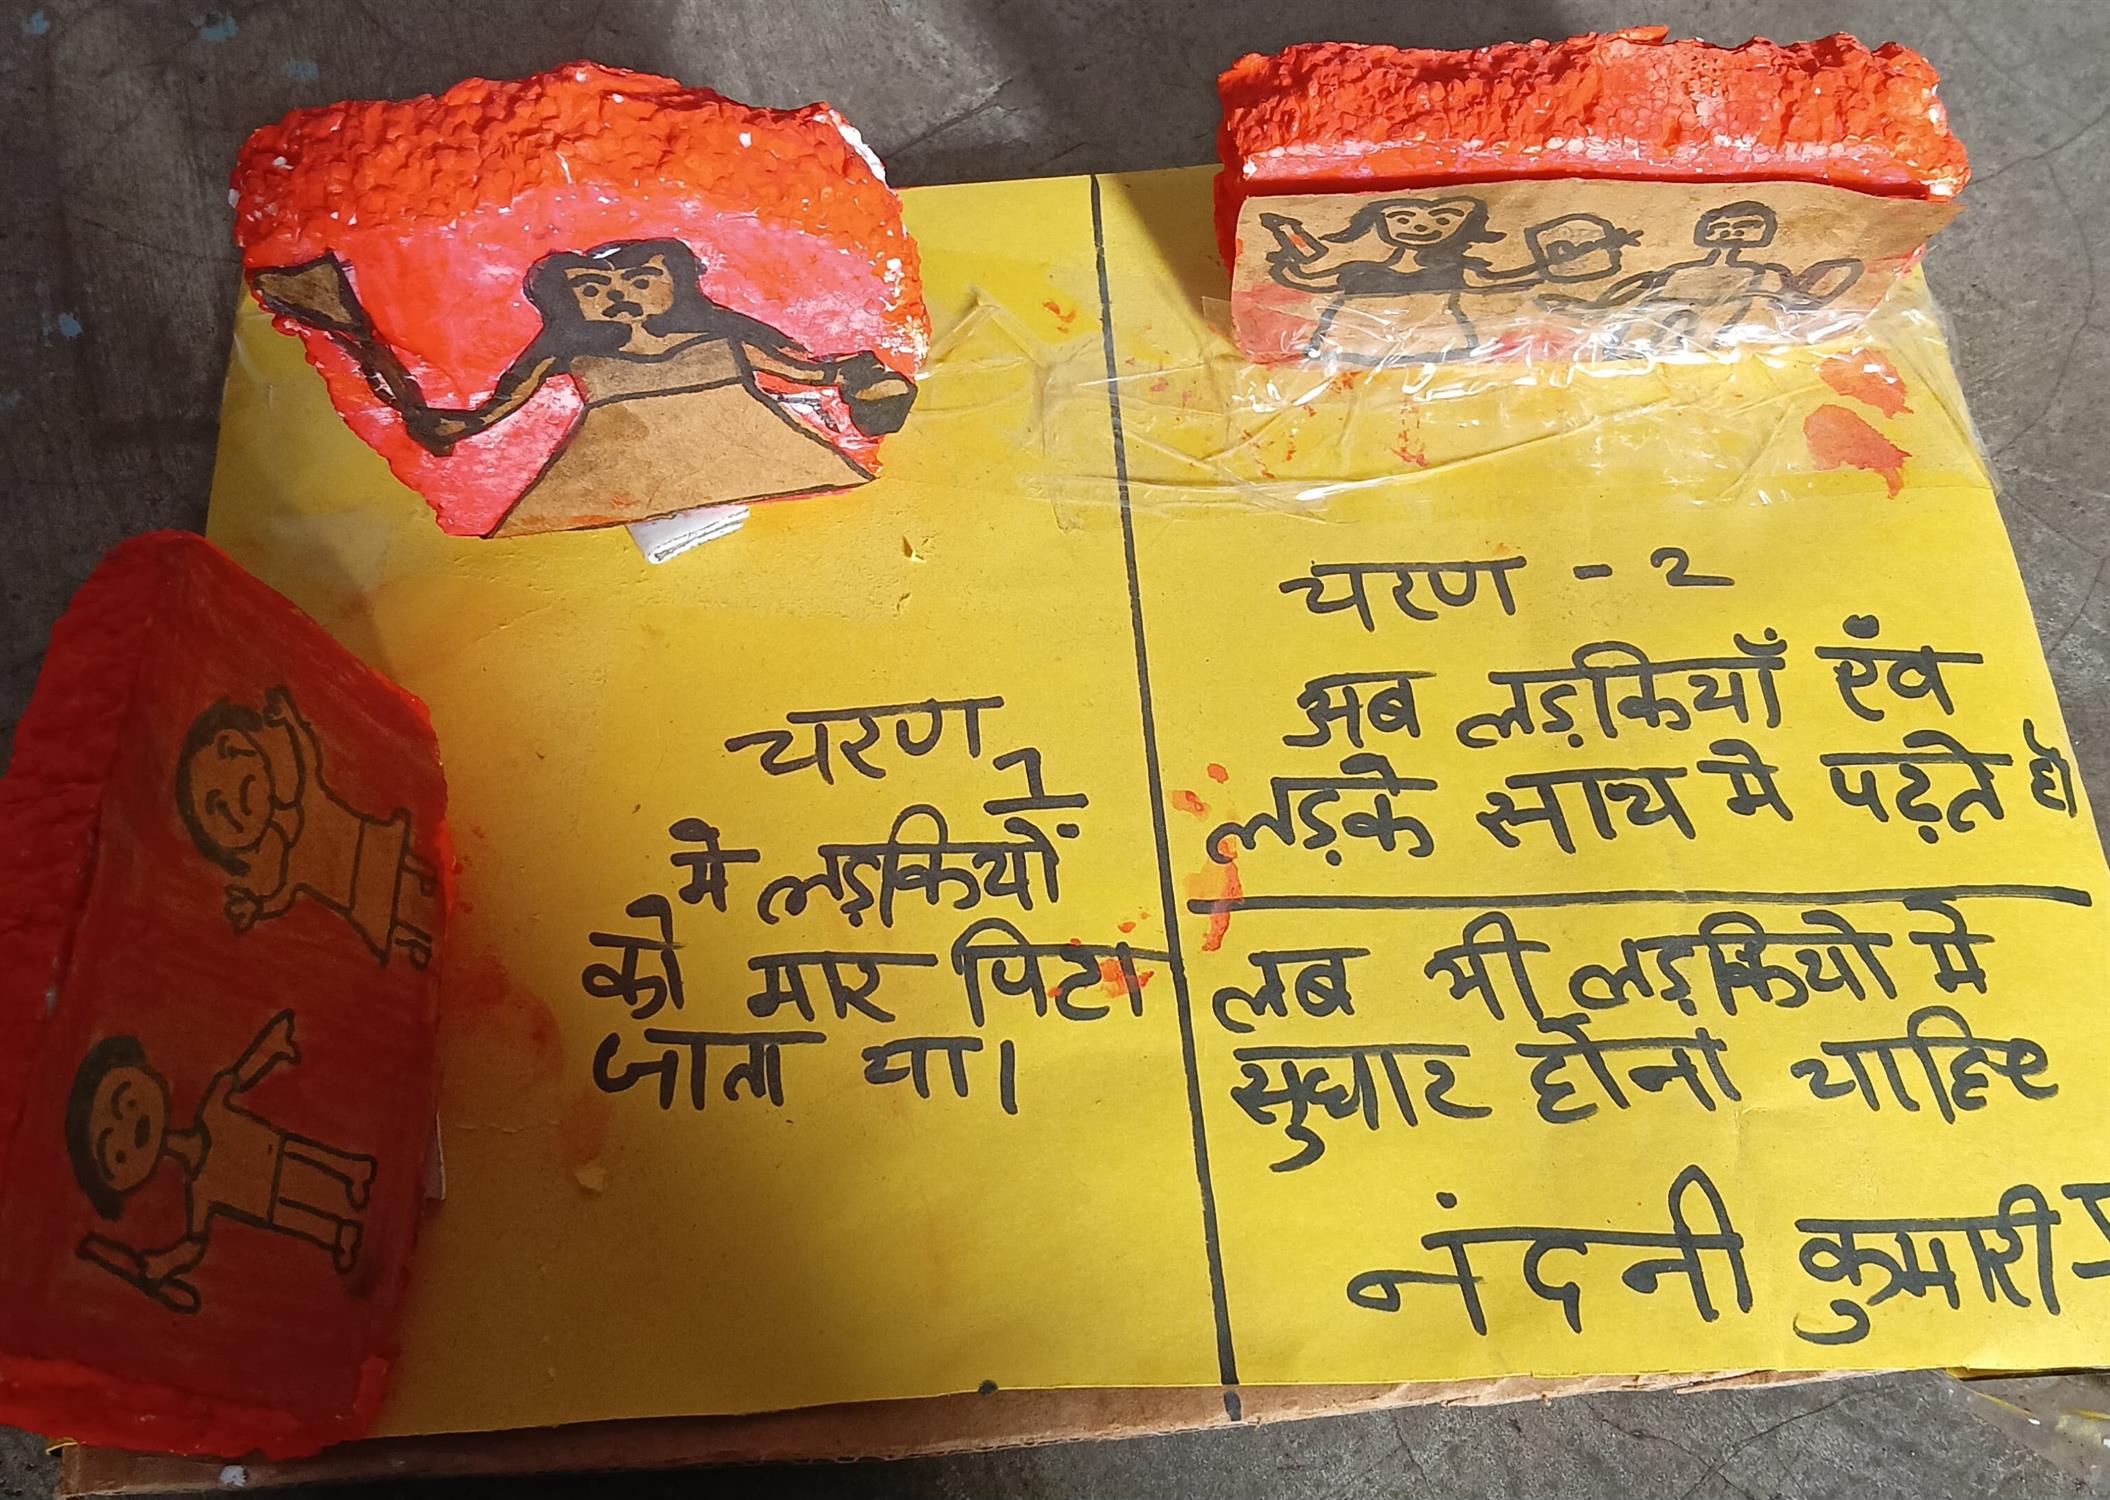 चरण 1
में लड़कियों
को मार पिटा
जाता था।
चरण - 2
अब लड़कियाँ एंव
लड़के साथ मे पढ़ते हैं
लब भी लड़कियो मे
सुधार होना चाहिए
नंदनी कुमारी